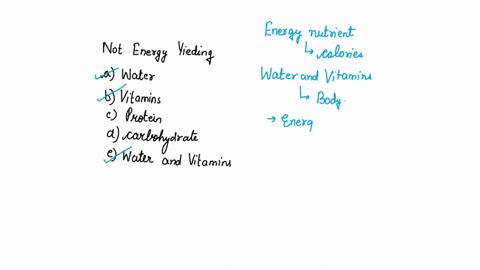 Not Energy Yieding
a) Water
b) Vitamins
c) Protein
d) carbohydrate
e) Water and Vitamins
Energy nutrient
↳ calories
Water and Vitamins
↳ Body.
→ Energ